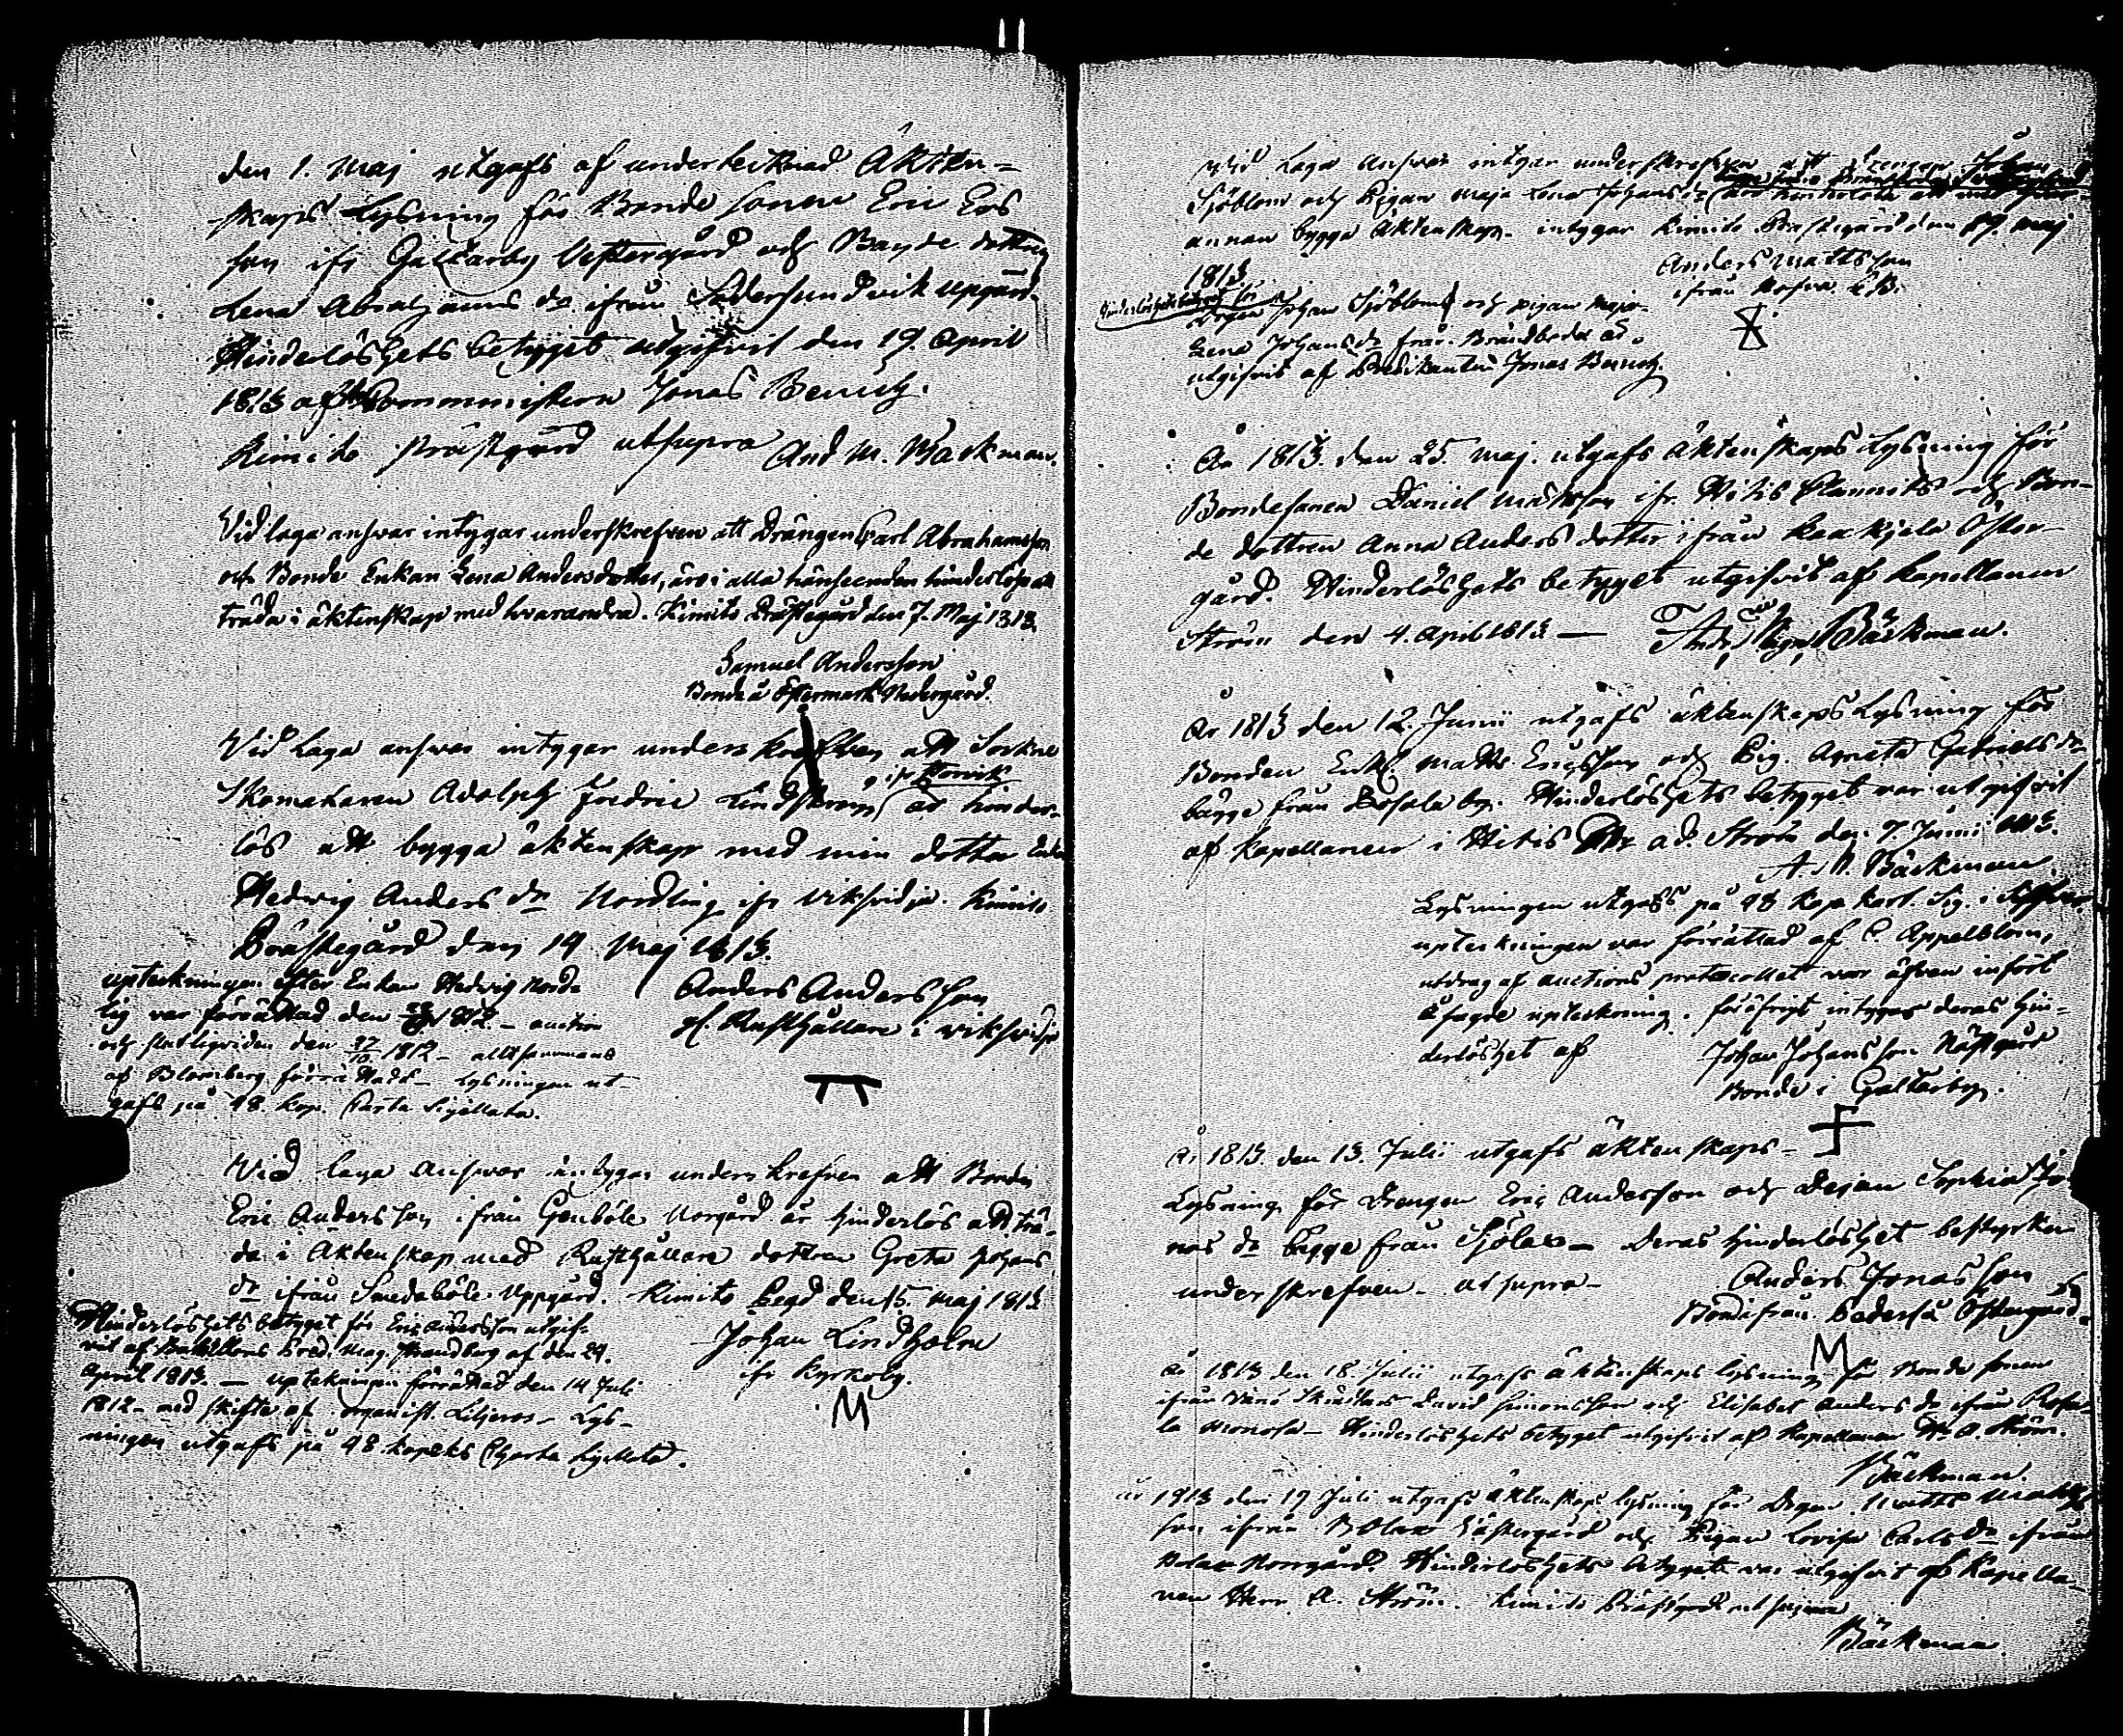 den 1. Maj utgafs af undertecknad Äkten=
skaps Lysning för Bonde sonen Eric Ers
son ifr Galtarby Vestergård och Bonde dottren
Lena Abrahams dr ifrån Södersundvik upgård.
Hinderlöshets betyget utgifvit den 19. April
1813 af Comministern Jonas Benich.
Kimito prästgård utsupra And M. Backman.
Vid laga ansvar intygar underskrefven att Drängen Carl Abrahamsson
och Bonde Enkan Lena Andersdotter, äro i alla hänseenden hinderlöse att
träda i äktenskap med hvarandra. Kimito Prästegård den 7. Maj 1813.
Samuel Andersson
Bonde å Östermark Nedergård.
Vid Laga ansvar intygar underskrefven att Sockne
Skomakaren Adolph Fredric Lindström är hinder-
lös att bygga äktenskap med min dotter Enkan
Hedwig Anders dr Nordling ifr Viksvidja. Kimito
Prästegård den 14 Maj 1813.
upteckningen efter Enkan Hedvig Nord-
lig var förrättad den 1812 – auction
och slutligviden den 27/10 1812 – alltsammans
af Blomberg förrättadt – Lysningen ut-
gafs på 48. kop. Carta Sigillata.
Anders Andersson
gl. Rusthållare i Viksvidja
Vid laga ansvar intygar underskrefven att Bonden
Eric Andersson ifrån Genböle Norgård är hinderlös att trä-
da i Äktenskap med Rusthållare dottren Greta Johans
dr ifrån Smedsböle Uppgård. Kimito Pregd den 15. Maj 1813
Hinderlöshets betyget för Eric Andersson utgif-
vit af Bataillons Pred. Mag. Strandberg af den 29.
April 1813. — upteckningen förrättad den 14 Juli
1812 – med skifte af organist. Liljeros – Lys-
ningen utgafs på 48 kopeks Charta Sigillata.
Johan Lindholm
ifr Kyrkoby.
M
Vid Laga Ansvar intygar underskrefven att Drengen Johan
Sjöblom och Pigan Maja Lena Johans dr
annan bygga Äktenskap – intygar Kimito Prästegård den 19. Maj
1813
Anders Mattsson
Hinderlöshets betyget för
Drengen Johan Sjöblom och pigan Maja-
Lena Johans dr från Brändboda är
utgifvit af Predikanten Jonas Benich.
År 1813. den 25. Maj. utgafs Äktenskaps Lysning för
Bondesonen Daniel Mattsson ifr. Hitis och Bon-
de dottren Anna Anders dotter ifrån Kaxkjela Öster-
gård. Hinderlöshets betyget utgifvit af Kapellanen
Ström den 4. April 1813 — And Mgn Bäckman.
År 1813 den 12. Junii utgafs äktenskaps Lysning för
Bonden Enkl Matts Ericsson och Pig. Agneta Gabriels dr
bägge från Rosala by. Hinderlöshets betyget var utgifvit
af Kapellanen i Hitis Hr ad. Ström den 7. Junii 1813.
A. M. Bäckman
Lysningen utgafs på 48 kop kart. Sig. i
upteckningen var förrättad af C. Appelblom,
utdrag af auctions protocollet var äfven infört
å sagde upteckning. föröfrigt intygas deras hin-
derlöshet af Johan Johansson Nästgård
Bonde i Galtarby.
År 1813. den 13. Julii utgafs äktenskaps –
Lysning för Drengen Eric Andersson och Dejan Sophia Jo-
nas dr begge från Sjölax – Deras hinderlöshet bestyrker
underskrefven – ut supra –
Anders Jonasson
Bonde ifrån Pederså Östergård.
M
År 1813 den 18. Julii utgafs äktenskaps lysning för Bonde sonen
ifrån David Simonsson och Elisabet Anders dr ifrån Rosa-
la Monosa – Hinderlöshets betyget utgifvit af Kapellanen Hr A. Ström.
Bäckman.
År 1813 den 19 Juli utgafs äktenskaps lysning för Drgen Matts Matts
son ifrån Bolax Västergård och Pigan Lovisa Carls dr ifrån
Bolax Norrgård. Hinderlöshets betyget var utgifvit af Kapella-
nen Herr A. Ström. Kimito Prästgård ut supra
Bäckman